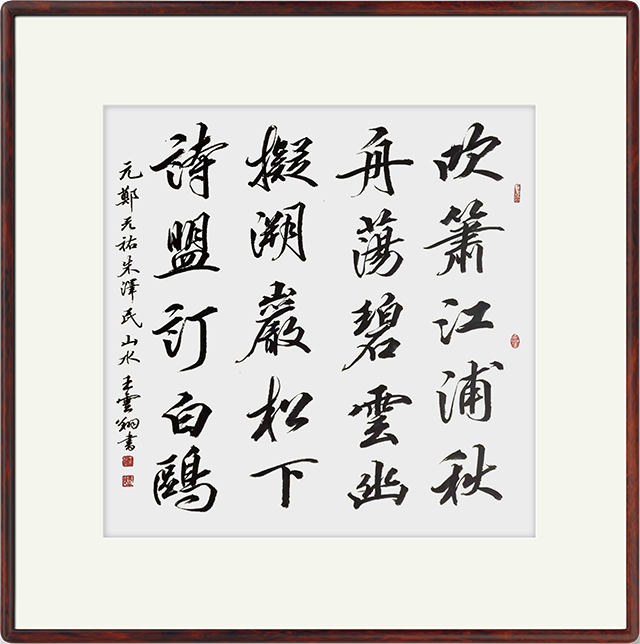 吹簫江浦秋
舟蕩碧雲幽
擬溯巖松下
詩盟訂白鷗
元鄭元祐朱澤民山水 王雲翔書